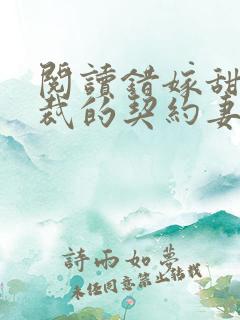 閱讀錯嫁甜
裁的契約妻
詩雨如夢
未经同意禁止转载